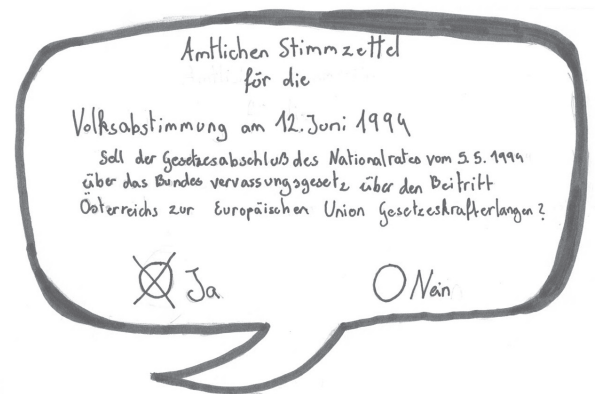 Amtlichen Stimmzettel
für die
Volksabstimmung am 12. Juni 1994
Soll der Gesetzesabschluß des Nationalrates vom 5.5. 1994
über das Bundes vervassungsgesetz über den Beitritt
Österreichs zur Europäischen Union Gesetzeskrafterlangen?
Ja Nein